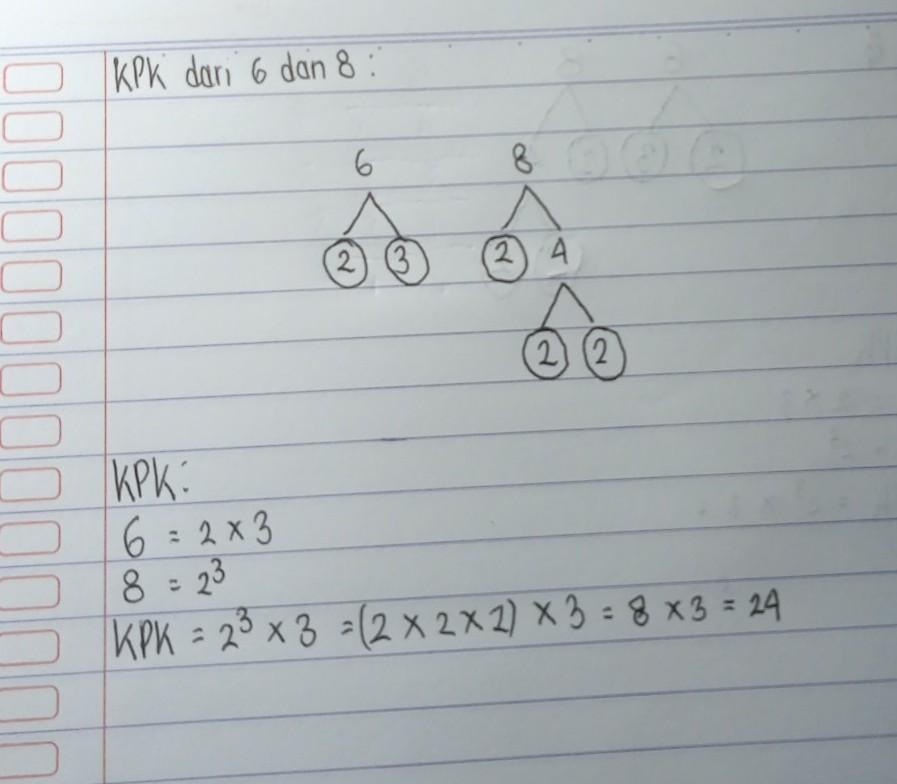 KPK dari 6 dan 8 :
6 8
2 3 2 4
2 2
KPK :
6 = 2 x 3
8 = 2³
KPK = 2³ x 3 = (2 x 2 x 2) x 3 = 8 x 3 = 24